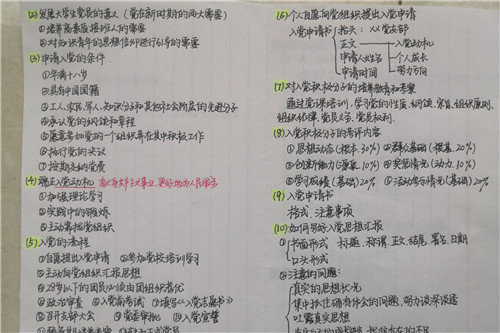 (2) 发展大学生党员的意义（党在新时期的两大需要）
①培养高素质接班人的需要
②对知识青年的思想信仰进行引导的需要
(3) 申请入党的条件
①年满十八岁
②具有中国国籍
③工人、农民、军人、知识分子和其他社会阶层的先进分子
④承认党的纲领和章程
⑤愿意参加党的一个组织并在其中积极工作
⑥执行党的决议
⑦按期交纳党费
(4) 端正入党动机
①加强理论学习
②实践中的锻炼
③主动靠拢党组织
(5) 入党的流程
①自愿提出入党申请 ②参加党校培训学习
③主动向党组织汇报思想
④28岁以下的团员必须由团组织推优
⑤政治审查 ⑥入党前考试 ⑦填写《入党志愿书》
⑧召开支部大会 ⑨党委审批 ⑩入党宣誓
(6) 个人自愿向党组织提出入党申请
入党申请书 抬头：XX党支部
正文 入党动机
申请人姓名 个人成长
申请时间 努力方向
(7) 对入党积极分子的培养教育和考察
通过党课培训，学习党的性质、纲领、宗旨、组织原则、
组织纪律、党员义务、党员权利
(8) 入党积极分子的考评内容
①思想动态(根本.30%) ②群众基础(根基.20%)
③创新能力(源泉.10%) ④实际情况(动力.10%)
⑤学习成绩(基础)20% ⑥活动参与情况(基础)20%
(9) 入党申请书
格式、注意事项
(10) 如何写好入党思想汇报
①书面形式 标题、称谓、正文、结尾、署名、日期
口头形式
②注意的问题：
真实的思想状况
集中抓住
吐露真实思想